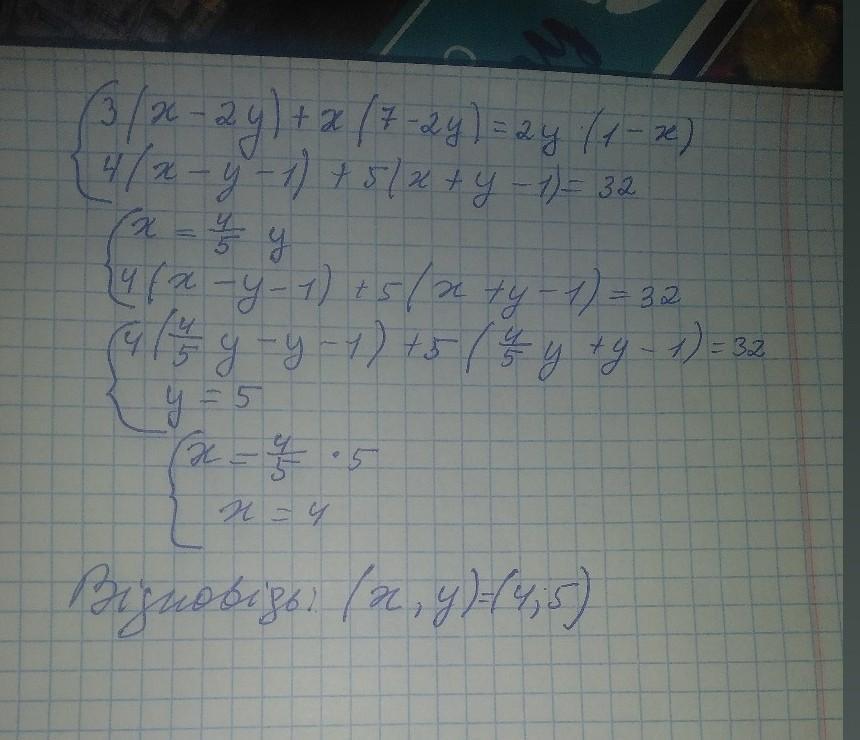 3(x-2y)+x(7-2y)=2y·(1-x)
4(x-y-1)+5(x+y-1)=32
x=4/5 y
4(x-y-1)+5(x+y-1)=32
4(4/5 y-y-1)+5(4/5 y+y-1)=32
y=5
x=4/5·5
x=4
Відповідь: (x,y)=(4;5)